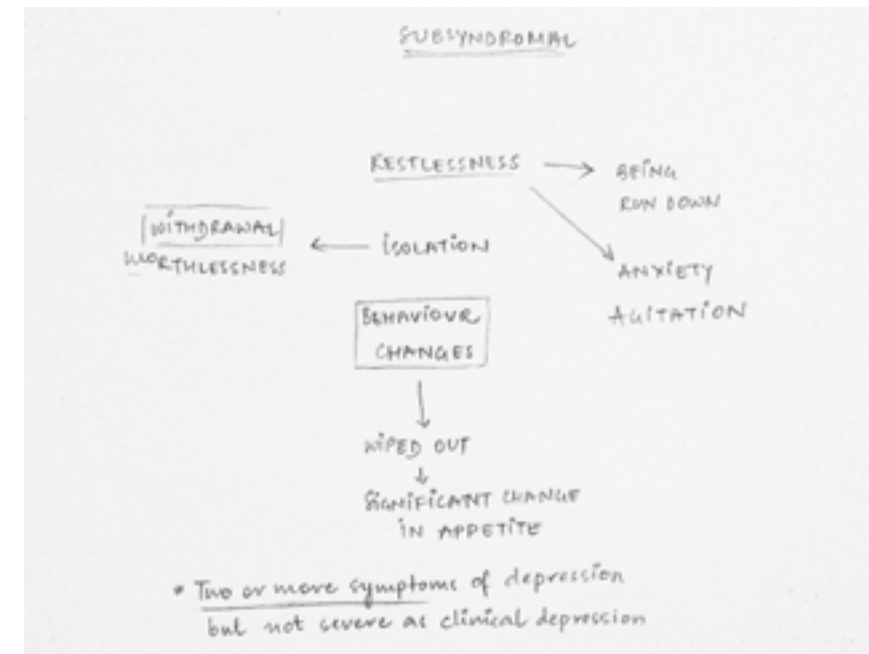 SUBSYNDROMAL
RESTLESSNESS → BEING
RUN DOWN
WITHDRAWAL ← ISOLATION
WORTHLESSNESS
ANXIETY
AGITATION
BEHAVIOUR
CHANGES
WIPED OUT
SIGNIFICANT CHANGE
IN APPETITE
* Two or more symptoms of depression
but not severe as clinical depression